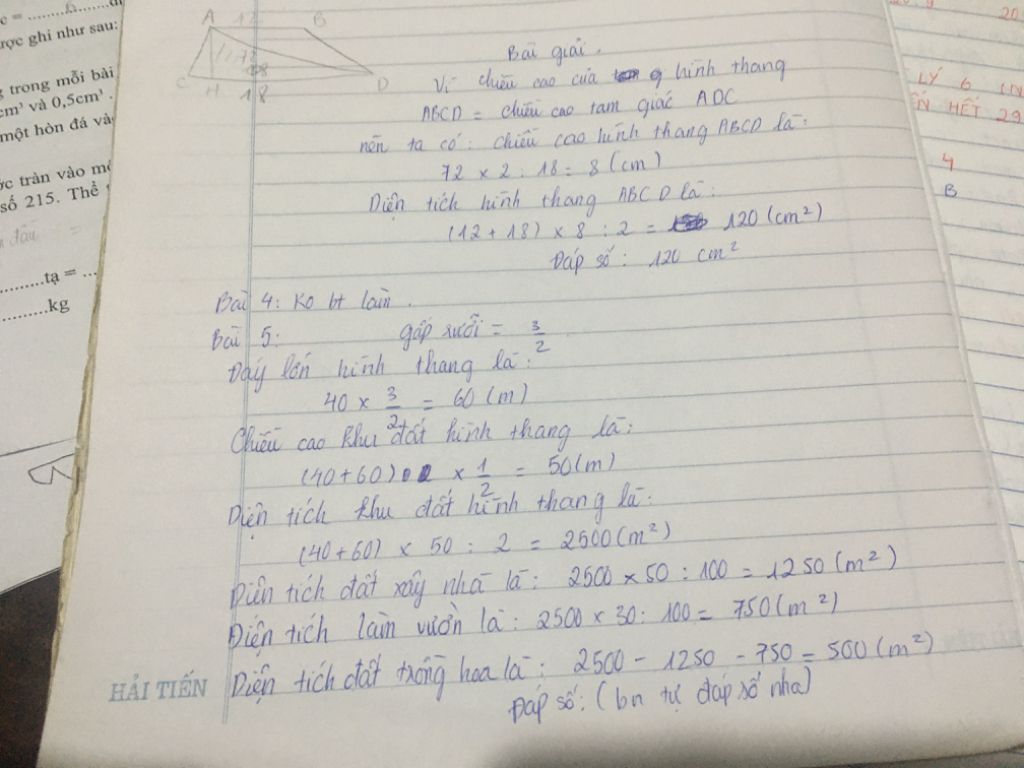 c = ........b........đ
ược ghi như sau:
g trong mỗi bài
cm³ và 0,5cm³.
một hòn đá và
ớc tràn vào m
số 215. Thể
.........tạ = ...
.........kg
A 12 B
C H 18 D
Bài giải.
Vì chiều cao của hình thang
ABCD = chiều cao tam giác ADC
nên ta có: chiều cao hình thang ABCD là:
72 x 2 : 18 = 8 (cm)
Diện tích hình thang ABCD là:
(12 + 18) x 8 : 2 = 120 (cm²)
Đáp số: 120 cm²
Bài 4: Ko bt làm.
Bài 5: gấp rưỡi = 3/2
Đáy lớn hình thang là:
40 x 3/2 = 60 (m)
Chiều cao khu đất hình thang là:
(40+60) x 1/2 = 50(m)
Diện tích khu đất hình thang là:
(40+60) x 50 : 2 = 2500(m²)
Diện tích đất xây nhà là: 2500 x 50 : 100 = 1250 (m²)
Diện tích làm vườn là: 2500 x 30 : 100 = 750 (m²)
Diện tích đất trồng hoa là: 2500 - 1250 - 750 = 500 (m²)
Đáp số: (bn tự đáp số nha)
HẢI TIẾN
20
LÝ 6
HẾT 29
4
B